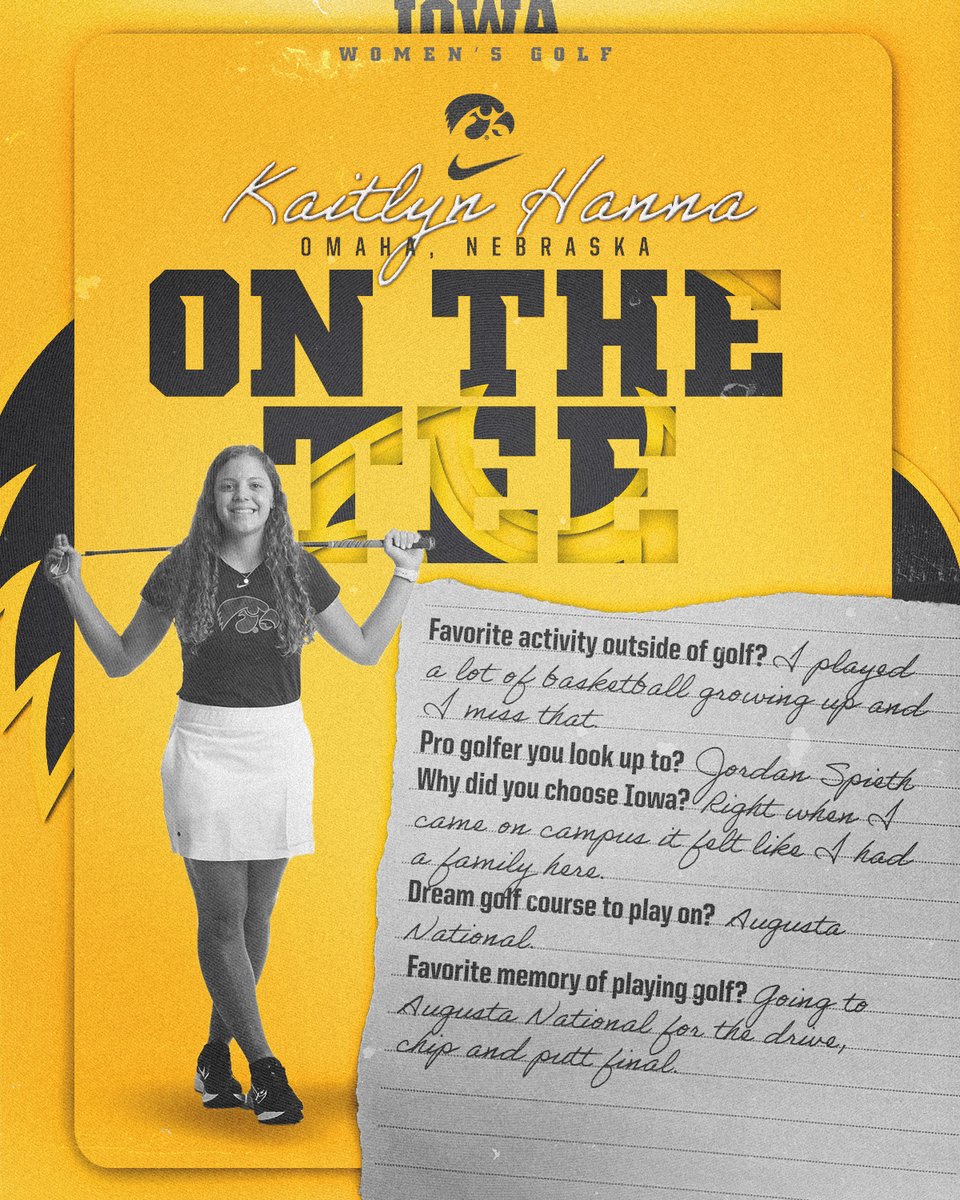 IOWA
WOMEN'S GOLF
Kaitlyn Hanna
OMAHA, NEBRASKA
ON THE
TEE
Favorite activity outside of golf? I played
a lot of basketball growing up and
I miss that.
Pro golfer you look up to? Jordan Spieth
Why did you choose Iowa? Right when I
came on campus it felt like I had
a family here.
Dream golf course to play on? Augusta
National.
Favorite memory of playing golf? Going to
Augusta National for the drive,
chip and putt final.